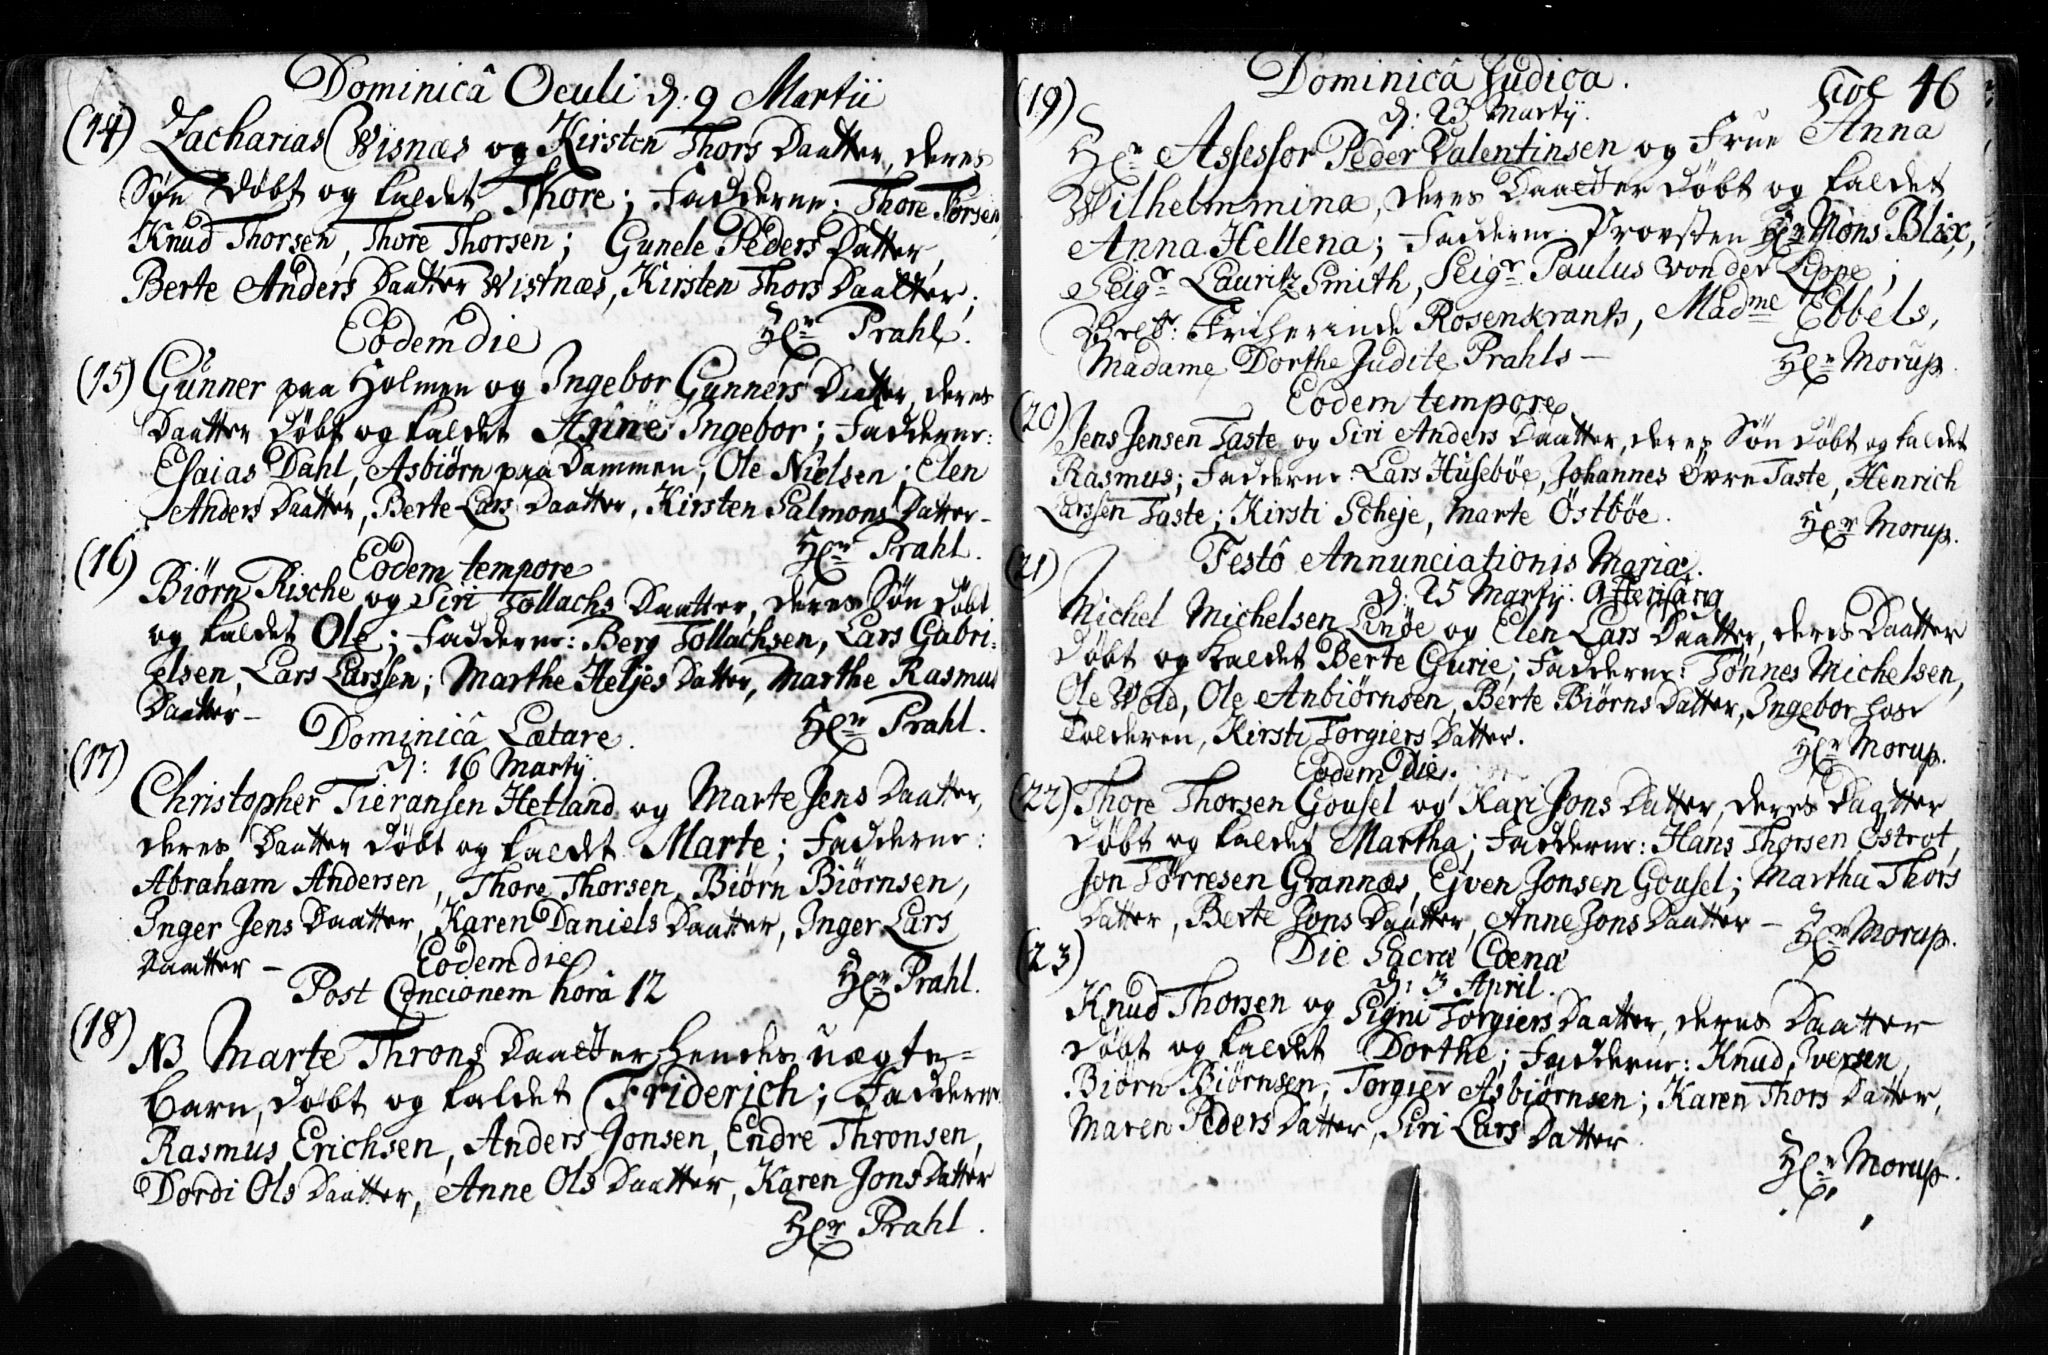 Dominicâ Oculi d: 9 Martii
(14) Zacharias Wisnæs og Kirsten Thors Daatter, deres
Søn døbt og kaldet Thore; Fadderne: Thore Torsen,
Knud Thorsen, Thore Thorsen; Gunele Peders Datter,
Berte Anders Daatter Wistnæs, Kirsten Thors Daatter;
Eodem die Hr Prahl.
(15) Gunner paa Holmen og Ingebor Gunners Datter, deres
Daatter døbt og kaldet Anne Ingebor; Fadderne:
Esaias Dahl, Asbiørn paa Dammen, Ole Nielsen; Elen
Anders Daatter, Berte Lars Daatter, Kirsten Salmons Datter-
Hr Prahl.
(16) Eodem tempore
Biørn Rische og Siri Tollachs Daatter, deres Søn døbt
og kaldet Ole; Fadderne: Berg Tollachsen, Lars Gabri-
elsen, Lars Larssen; Marthe Heljes Datter, Marthe Rasmus
Daatter- Hr Prahl.
Dominicâ Lætare.
(17) d: 16 Martij.
Christopher Tieransen Hetland og Marte Jens Daatter,
deres Daatter døbt og kaldet Marte; Fadderne:
Abraham Andersen, Thore Thorsen, Biørn Biørnsen,
Inger Jens Daatter, Karen Daniels Daatter, Inger Lars
Daatter - Eodem die
Post Concionem horâ 12 Hr Prahl.
(18) NB Marte Throns Daatter hendes uægte-
barn, døbt og kaldet Friderich; Fadderne
Rasmus Erichsen, Anders Jonsen, Endre Thronsen,
Dordi Ols Daatter, Anne Ols Daatter, Karen Jons Datter
Hr Prahl.
Dominicâ Judica. Fol 46
(19) d: 23 Martij.
Hr Assessor Peder Valentinsen og Frue Anna
Wilhelmmina, deres Daatter døbt og kaldet
Anna Hellena; Fadderne: Provsten Hr Mons Blix,
Seigr Lauritz Smith, Seigr Paulus von der Lippe;
Friherinde Rosenkrants, Madme Ebbels,
Madame Dorthe Judite Prahls - Hr Morup.
Eodem tempore
(20) Jens Jensen Taste og Siri Anders Daatter, deres Søn døbt og kaldet
Rasmus; Fadderne: Lars Husebøe, Johannes Øvre Taste, Henrich
Larssen Taste; Kirsti Scheje, Marte Östbøe. Hr Morup.
(21) Festô Annunciationis Mariæ.
d: 25 Martij. Aftersang
Michel Michelsen Linöe og Elen Lars Daatter, deres Daatter
døbt og kaldet Berte Gurie; Fadderne: Tønnes Michelsen,
Ole Wold, Ole Anbiørnsen, Berte Biørns Datter, Ingebor hos
Tolderen, Kirsti Torgiers Datter. Hr Morup.
Eodem Die.
(22) Thore Thorsen Gousel og Kari Jons Datter, deres Daatter
døbt og kaldet Martha; Fadderne: Hans Thorsen Östrot,
Jon Tørresen Grannæs, Ejven Jonsen Gousel; Martha Thors
Datter, Berte Jons Daatter, Anne Jons Daatter - Hr Morup.
(23) Die Sacræ Cœnæ
d: 3 April.
Knud Thorsen og Signi Torgiers Daatter, deres Daatter
døbt og kaldet Dorthe; Fadderne: Knud Iversen,
Biørn Biørnsen, Torgier Asbiørnsen; Karen Thors Datter,
Maren Peders Datter, Siri Lars Datter
Hr Morup.